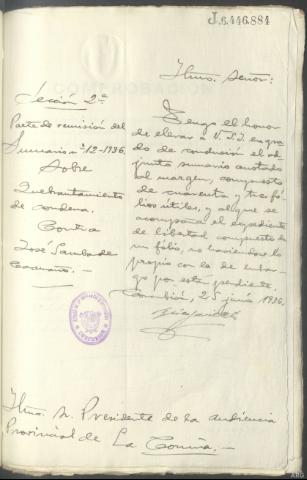 J.6.446.884
Ilmo. Señor:
Sección 2ª
Parte de remisión del
Sumario nº 12-1936.
Sobre
Quebrantamiento
de condena.
Contra
José Samba de
Tengo el honor
de elevar a V.S.I. en gra-
do de conclusión el ad-
junto sumario anotado
al margen, compuesto
de cuarenta y tres fó-
lios útiles, y al que se
acompaña el expediente
de libertad compuesto de
un fólio, no haciéndose lo
propio con la de embar-
go por estar pendiente.
Corcubión, 25 junio 1936.
Ilmo. Sr. Presidente de la Audiencia
Provincial de La Coruña.-